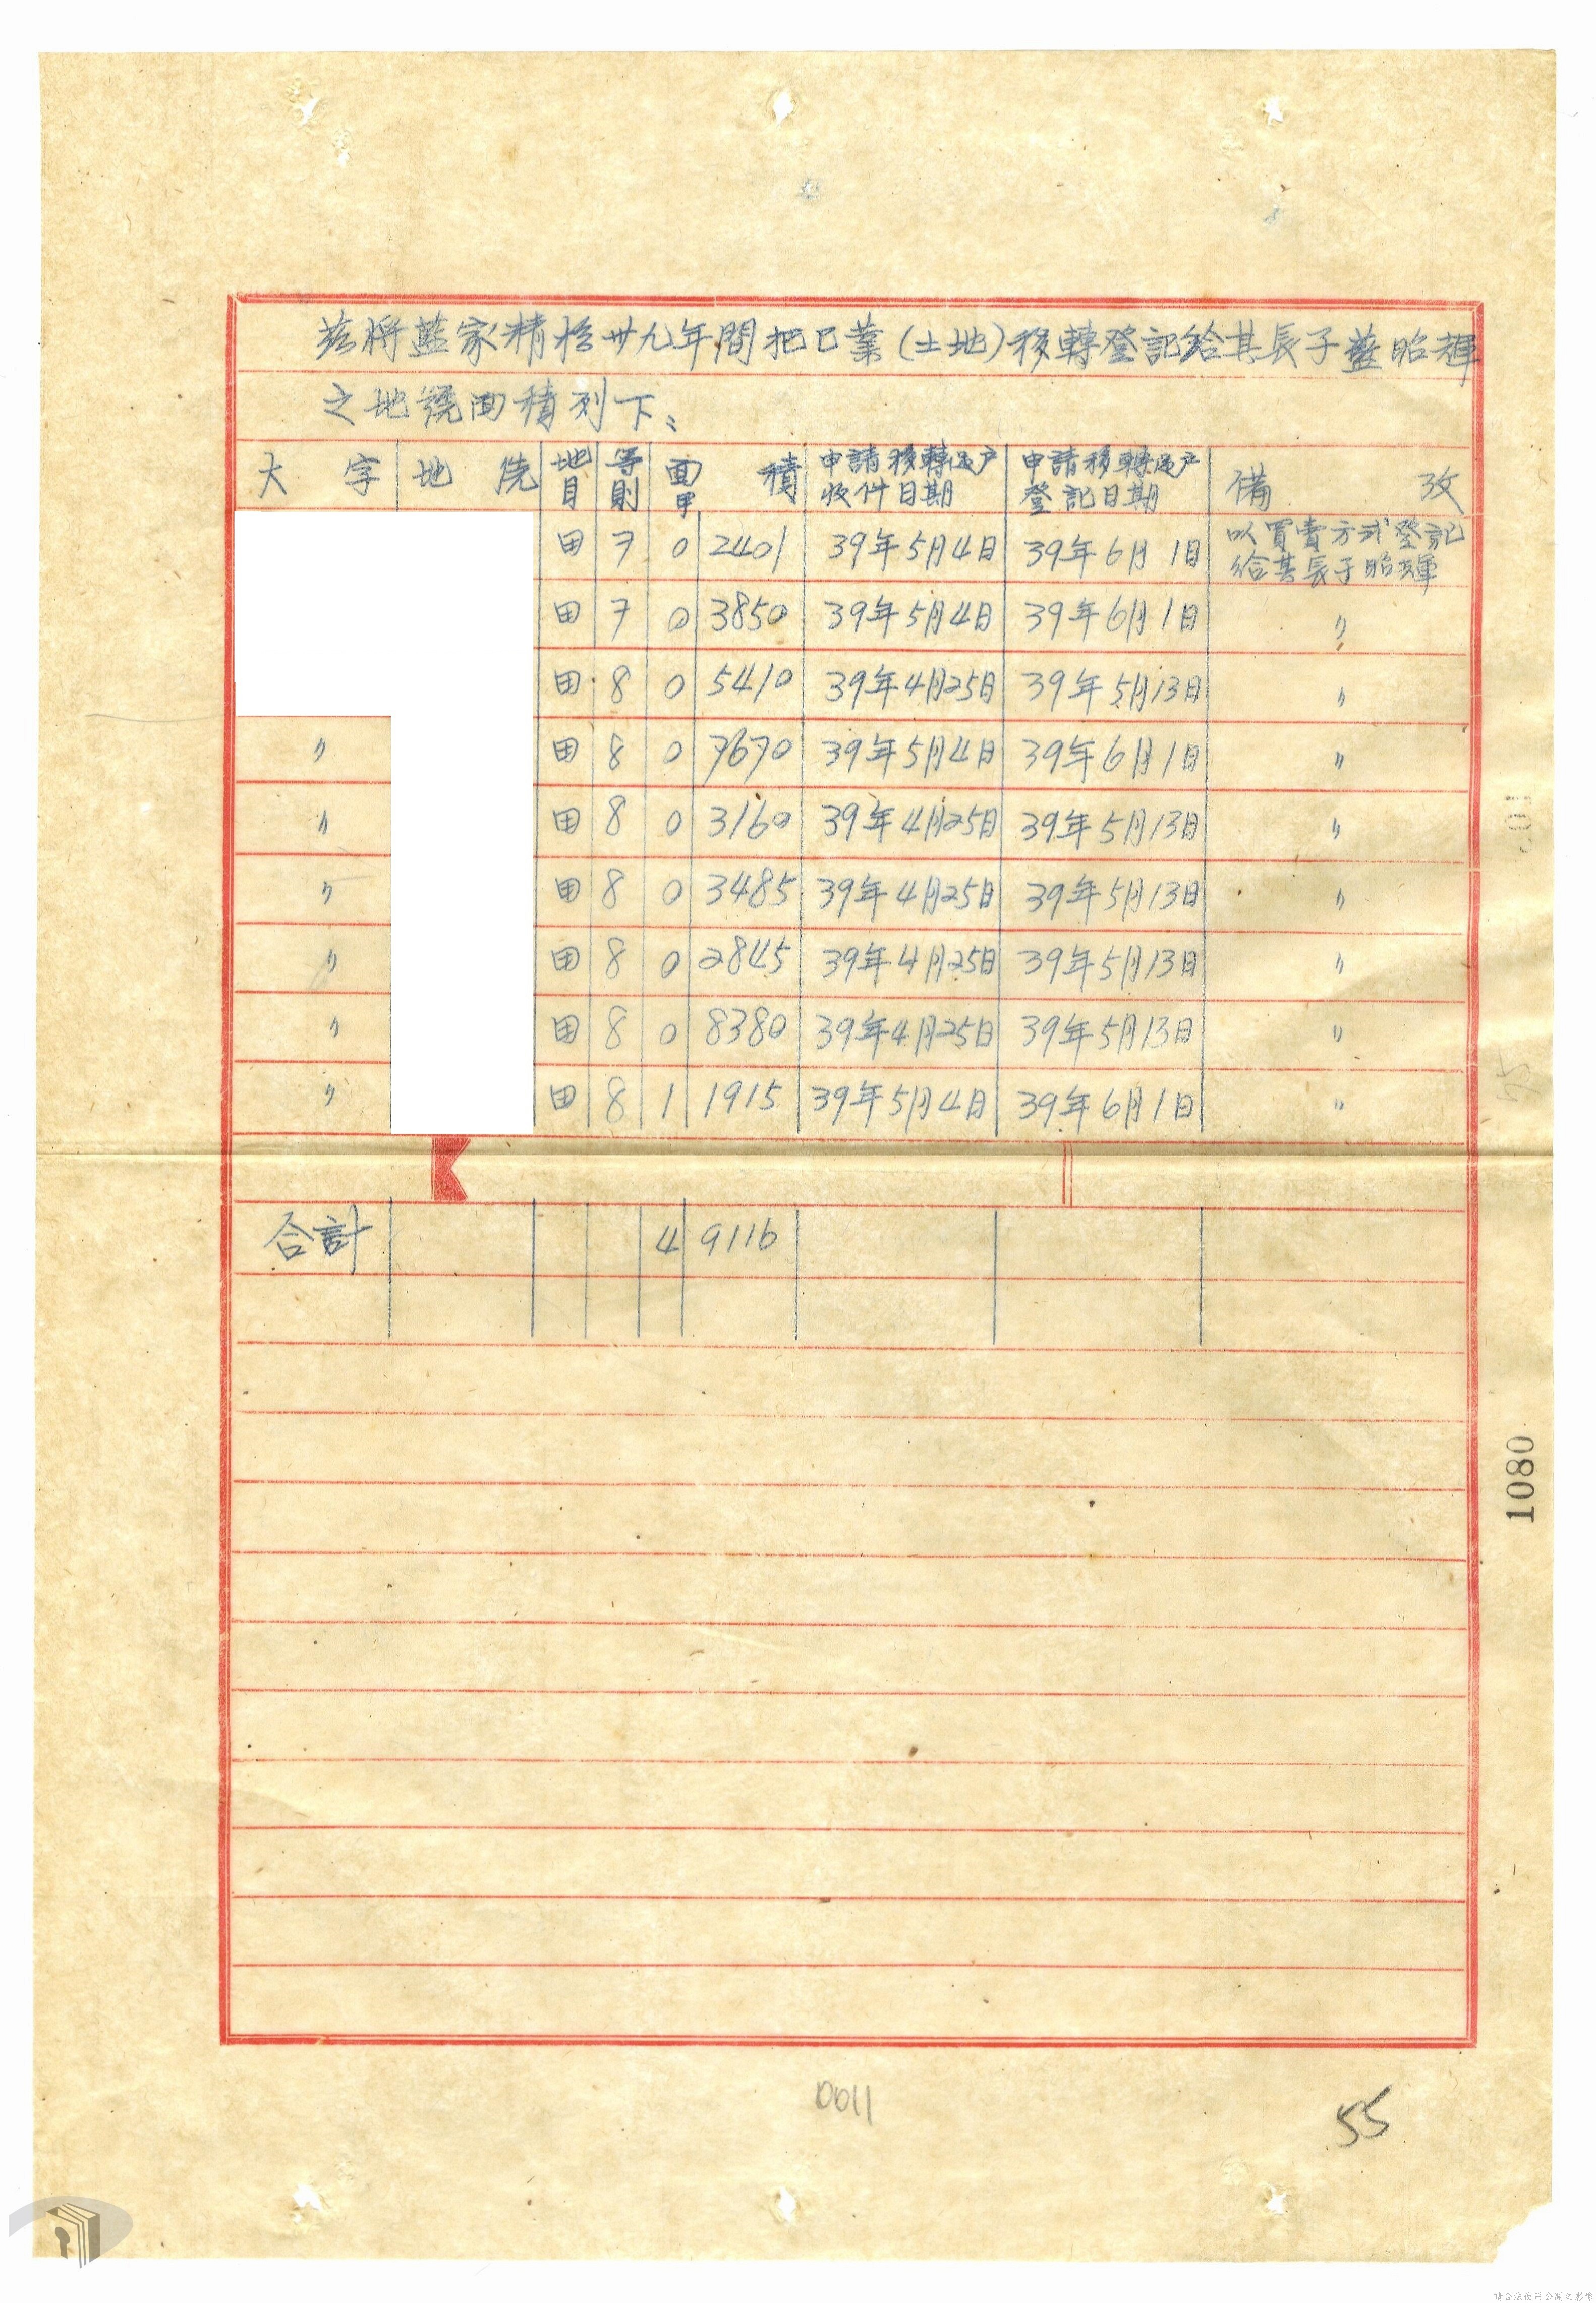 茲將藍家精於卅九年間把己業(土地)移轉登記給其長子藍昭輝
之地號面積列下:
大字 地號 地目 等則 面積 甲 申請移轉過户收件日期 申請移轉過户登記日期 備攷
田 7 0 2401 39年5月4日 39年6月1日 以買賣方式登記給其長子昭輝
田 7 0 3850 39年5月4日 39年6月1日 〃
田 8 0 5410 39年4月25日 39年5月13日 〃
〃 田 8 0 7670 39年5月4日 39年6月1日 〃
〃 田 8 0 3160 39年4月25日 39年5月13日 〃
〃 田 8 0 3485 39年4月25日 39年5月13日 〃
〃 田 8 0 2845 39年4月25日 39年5月13日 〃
〃 田 8 0 8380 39年4月25日 39年5月13日 〃
〃 田 8 1 1915 39年5月4日 39年6月1日 〃
合計 4 9116
1080
0011
55
請合法使用公開之影像